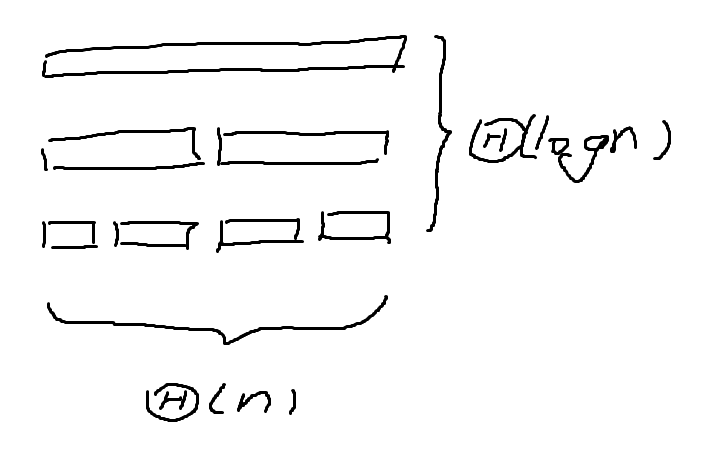 Θ(logn)
Θ(n)